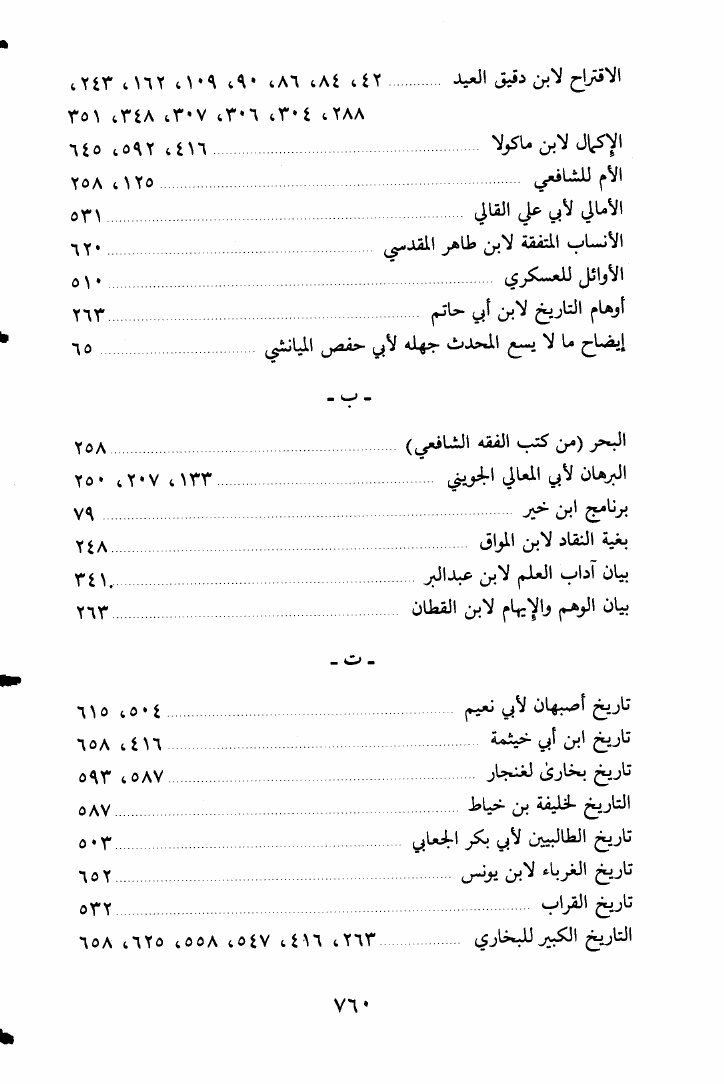 الاقتراح لابن دقيق العيد ............ ٤٢، ٨٤، ٨٦، ٩٠، ١٠٩، ١٦٢، ٢٤٣،
٢٨٨، ٣٠٤، ٣٠٦، ٣٠٧، ٣٤٨، ٣٥١
الإكمال لابن ماكولا ............ ٤١٦، ٥٩٢، ٦٤٥
الأم للشافعي ............ ١٢٥، ٢٥٨
الأمالي لأبي علي القالي ............ ٥٣١
الأنساب المتفقة لابن طاهر المقدسي ............ ٦٢٠
الأوائل للعسكري ............ ٥١٠
أوهام التاريخ لابن أبي حاتم ............ ٢٦٣
إيضاح ما لا يسع المحدث جهله لأبي حفص الميانشي ............ ٦٥
- ب -
البحر (من كتب الفقه الشافعي) ............ ٢٥٨
البرهان لأبي المعالي الجويني ............ ١٣٣، ٢٠٧، ٢٥٠
برنامج ابن خير ............ ٧٩
بغية النقاد لابن المواق ............ ٢٤٨
بيان آداب العلم لابن عبدالبر ............ ٣٤١
بيان الوهم والإيهام لابن القطان ............ ٢٦٣
- ت -
تاريخ أصبهان لأبي نعيم ............ ٥٠٤، ٦١٥
تاريخ ابن أبي خيثمة ............ ٤١٦، ٦٥٨
تاريخ بخارىٰ لغنجار ............ ٥٨٧، ٥٩٣
التاريخ لخليفة بن خياط ............ ٥٨٧
تاريخ الطالبيين لأبي بكر الجعابي ............ ٥٠٣
تاريخ الغرباء لابن يونس ............ ٦٥٢
تاريخ القراب ............ ٥٣٢
التاريخ الكبير للبخاري ............ ٢٦٣، ٤١٦، ٥٤٧، ٥٥٨، ٦٢٥، ٦٥٨
٧٦٠